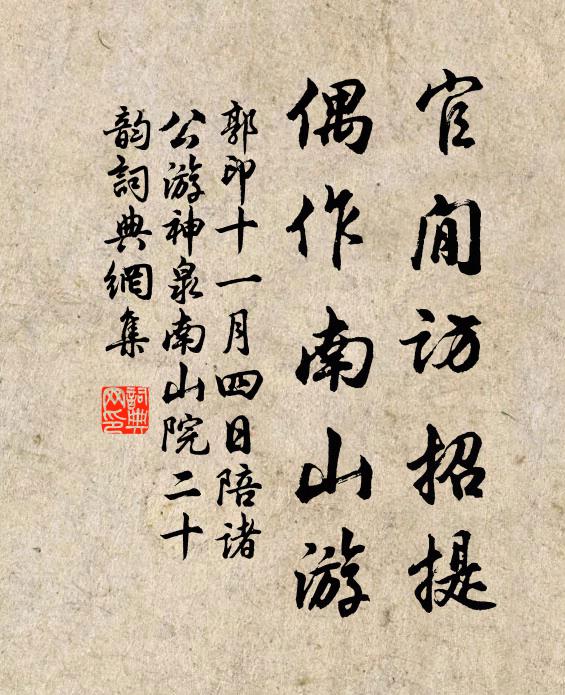 官閒訪招提
偶作南山游
郭印十一月四日陪諸
公游神泉南山院二十
韵詞典網集
詞典
网印